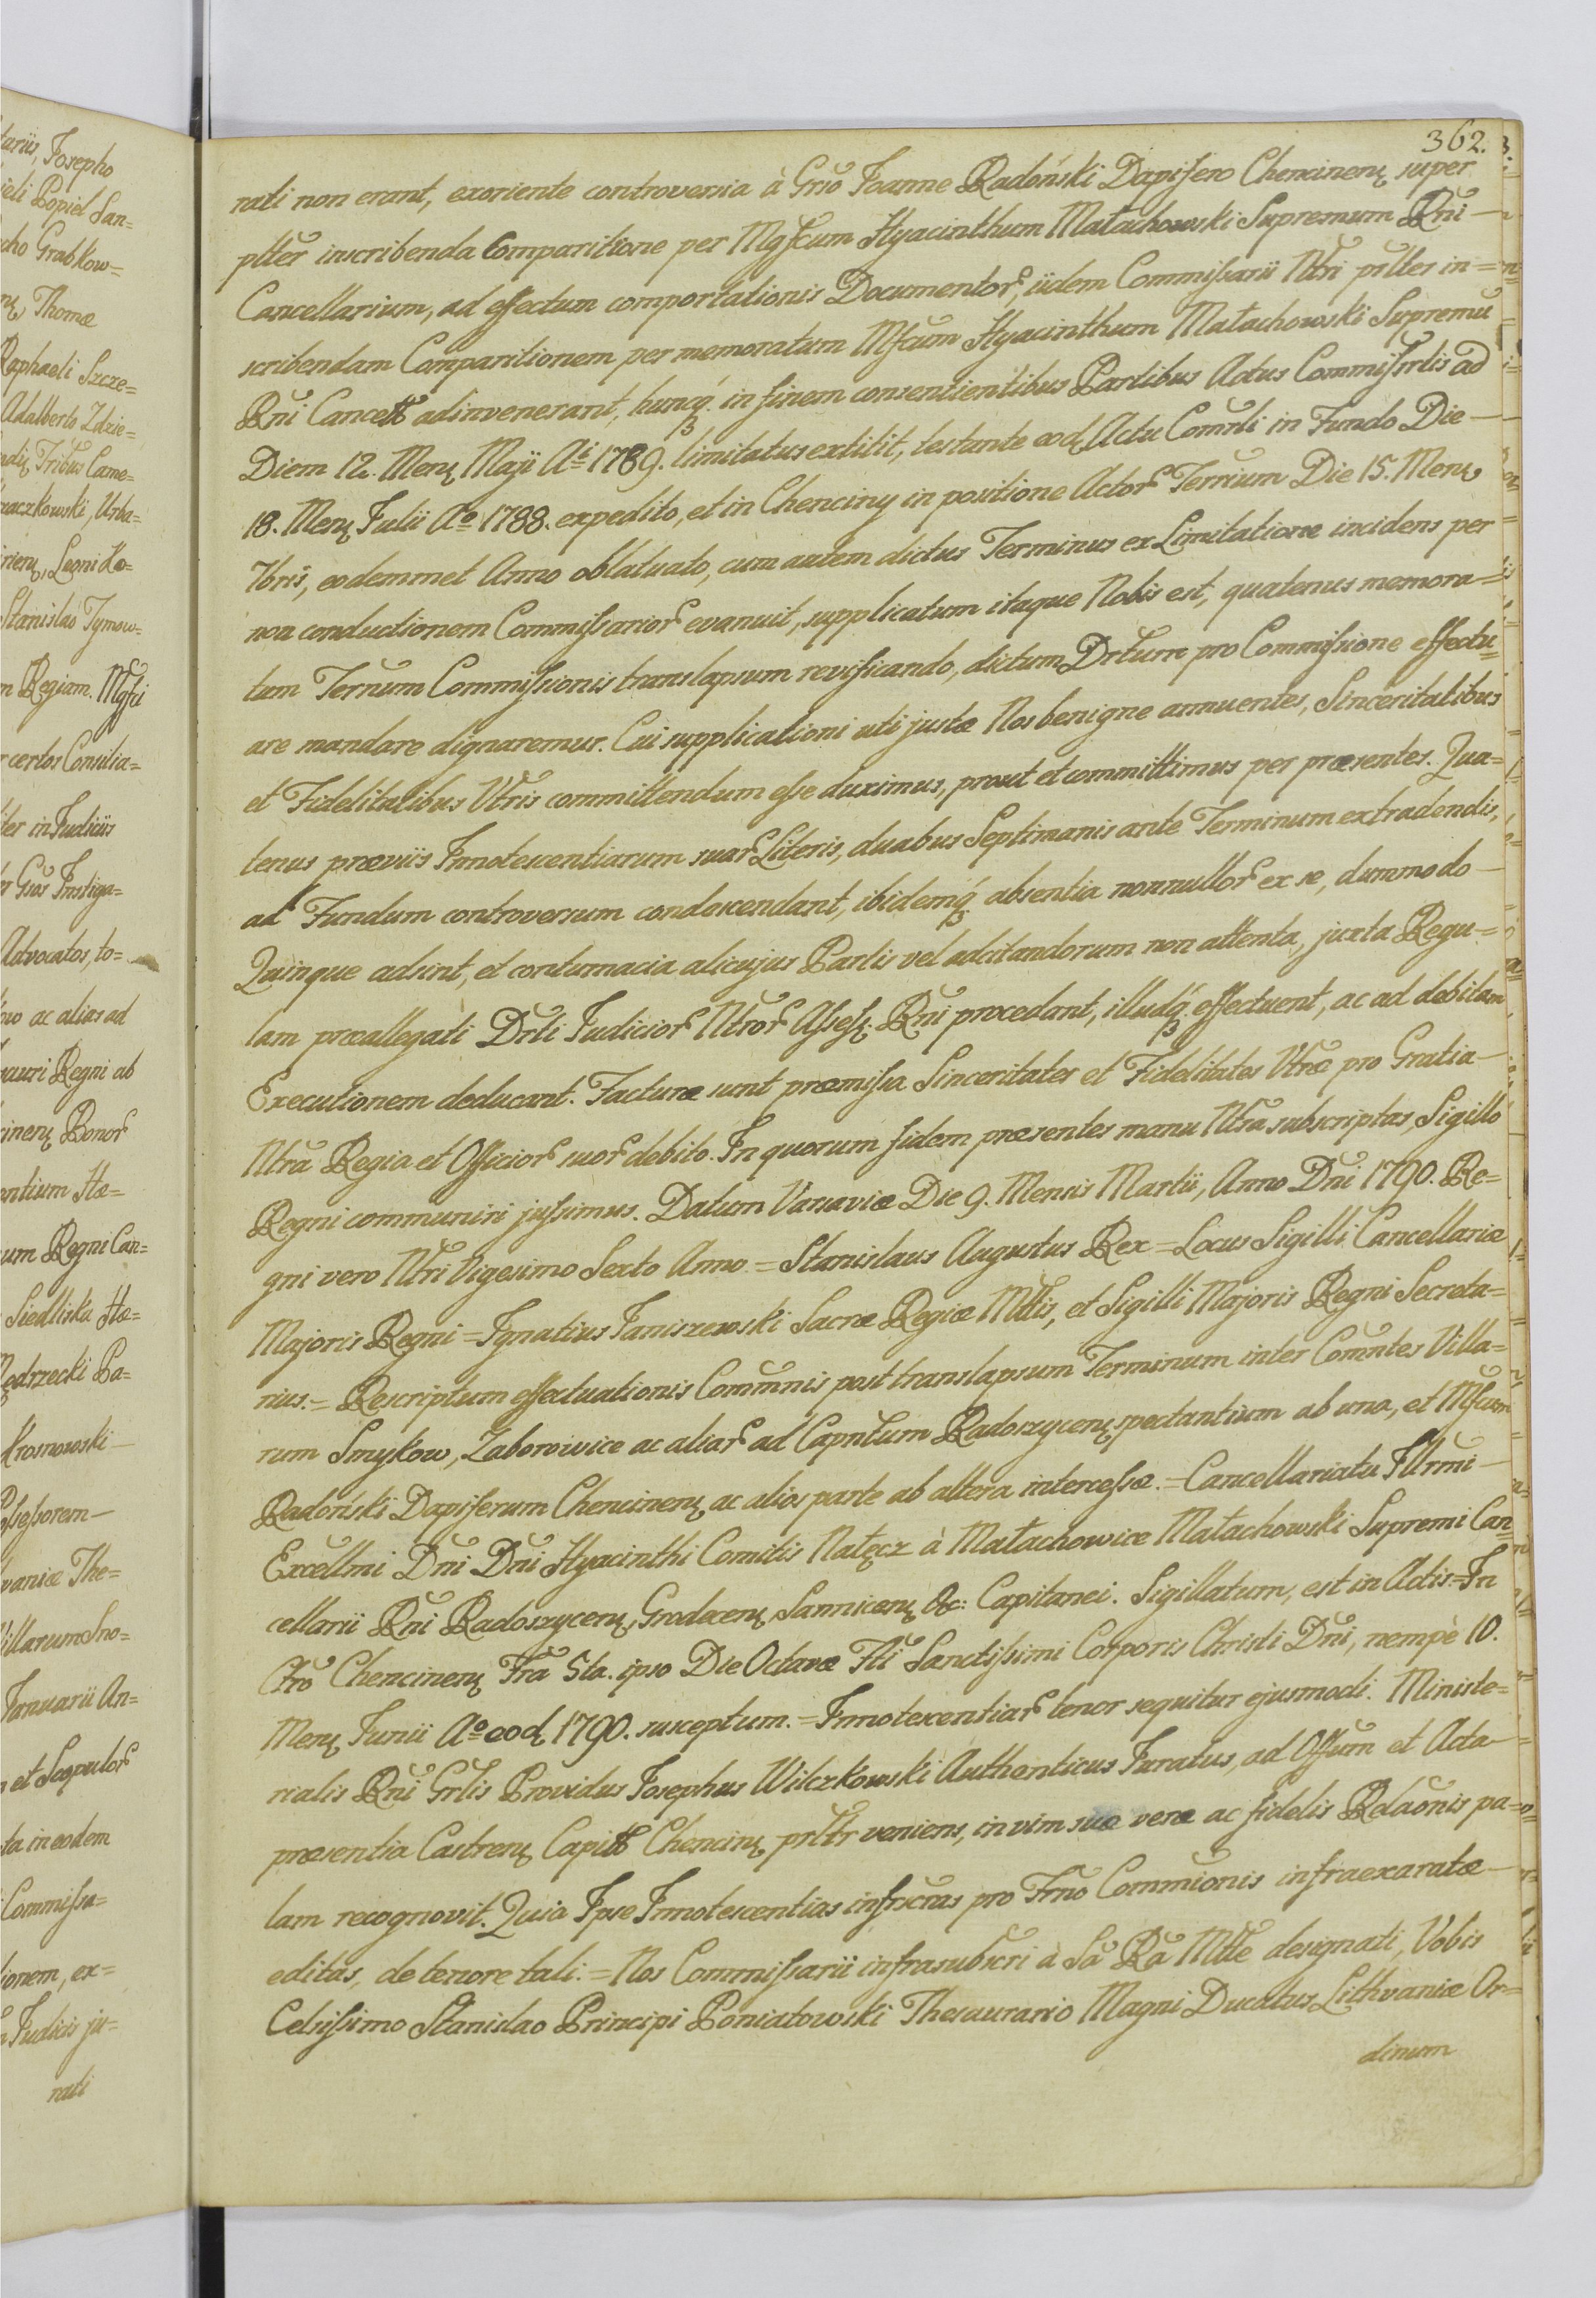 362.
rati non erant, exoriente controversia à Grso Joanne Radoński Dapifero Chencinenę super
plter inscribenda Comparitione per Mgfcum Hyacinthum Małachowski Supremum Rni
Cancellarium, ad effectum comportationis Documentor, iidem Commissarii Ntri prltes in=
scribendam Comparitionem per memoratum Mfcum Hyacinthum Małachowski Supremũ
Rni Cancell adinvenerant, huncq. in finem consentientibus Partibus Actus Commissrlis ad
Diem 12. Menę Maji Ai 1789. limitatus extitit, testante eod Actu Comrli in Fundo Die
18. Menę Julii Ao 1788. expedito, et in Chenciny in positione Actor Terrium Die 15. Menę
7bris, eodemmet Anno oblatuato, cum autem dictus Terminus ex Limitatione incidens per
non conductionem Commissarior evanuit, supplicatum itaque Nobis est, quatenus memora=
tum Ternum Commissionis translapsum revificando, dictum Drtum pro Commissione effectu=
are mandare dignaremur. Cui supplicationi uti justæ Nos benigne annuentes, Sinceritatibus
et Fidelitatibus Vtris committendum esse duximus, prout et committimus per præsentes. Qua=
tenus præviis Innotescentiarum suar Literis, duabus Septimanis ante Terminum extradendis,
ad Fundum controversum condescendant, ibidemq. absentia nonnullor ex se, dummodo
Quinque adsint, et contumacia alicujus Partis vel adcitandorum non attenta, juxta Regu=
lam præallegati Drti Judicior Ntror Assesę. Rni procedant, illudq. effectuent, ac ad debitam
Executionem deducant. Facturæ sunt præmissa Sinceritates et Fidelitates Vtræ pro Gratia
Ntra Regia et Officior suor debito. In quorum fidem præsentes manu Ntra subscriptas, Sigillo
Regni communiri jussimus. Datum Varsaviæ Die 9. Mensis Martii, Anno Dni 1790. Re=
gni vero Ntri Vigesimo Sexto Anno. = Stanislaus Augustus Rex = Locus Sigilli Cancellariæ
Majoris Regni = Ignatius Janiszewski Sacræ Regiæ Mttis, et Sigilli Majoris Regni Secreta=
rius. = Rescriptum effectuationis Commnis post translapsum Terminum inter Comntes Villa=
rum Smyków, Zaborowice ac aliar ad Capntum Radoszycenę spectantium ab una, et Mfcum
Radoński Dapiferum Chencinenę ac alios parte ab altera intercessæ. = Cancellariatu Illrmi
Excellmi Dni Dni Hyacinthi Comitis Nałęcz à Małachowice Małachowski Supremi Can=
cellarii Rni Radoszycenę, Grodecenę Sannicenę &c: Capitanei. Sigillatum, est in Actis = In
Ctro Chencinenę Fra 5ta. ipso Die Octavæ Fti Sanctissimi Corporis Christi Dni, nempè 10.
Menę Junii Ao eod 1790. susceptum. = Innotescentiar tenor sequitur ejusmodi. Ministe=
rialis Rni Grlis Providus Josephus Wilczkowski Authenticus Juratus, ad Offum et Acta
præsentia Castrenę Capitł Chencinę prltr veniens, in vim suæ veræ ac fidelis Relaõnis pa=
lam recognovit. Quia Ipse Innotescentias infrscras pro Trno Commionis infraexaratæ
editas, de tenore tali. = Nos Commissarii infrasubscri à Sa Ra Mtte designati, Vobis
Celsissimo Stanislao Principi Poniatowski Thesaurario Magni Ducatus Lithvaniæ Or=
dinum
tariis, Josepho
ieli Popiel San=
cho Grabkow=
Thomæ
Raphaeli Szcze=
Adalberto Zdzie=
Tribus Came=
raczkowski, Urba=
Leoni Ko=
Stanislao Tymow=
m Regiam. Mgfci
certos Consilia=
ter in Judiciis
Gsos Instiga=
Advocatos, to=
ac alias ad
sauri Regni ab
cinenę Bonor
entium Hæ=
um Regni Can=
Siedliska Hæ=
Mędrzecki Po=
Krosnowski
ossessorem
vaniæ The=
Villarum Smo=
Januarii An=
et Scopulor
ta in eodem
Commissa=
tionem, ex=
Judicis ju=
rati